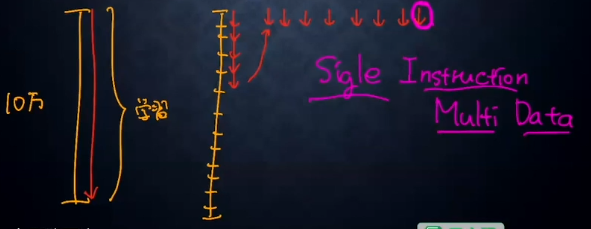 10万
Sigle Instruction
Multi Data